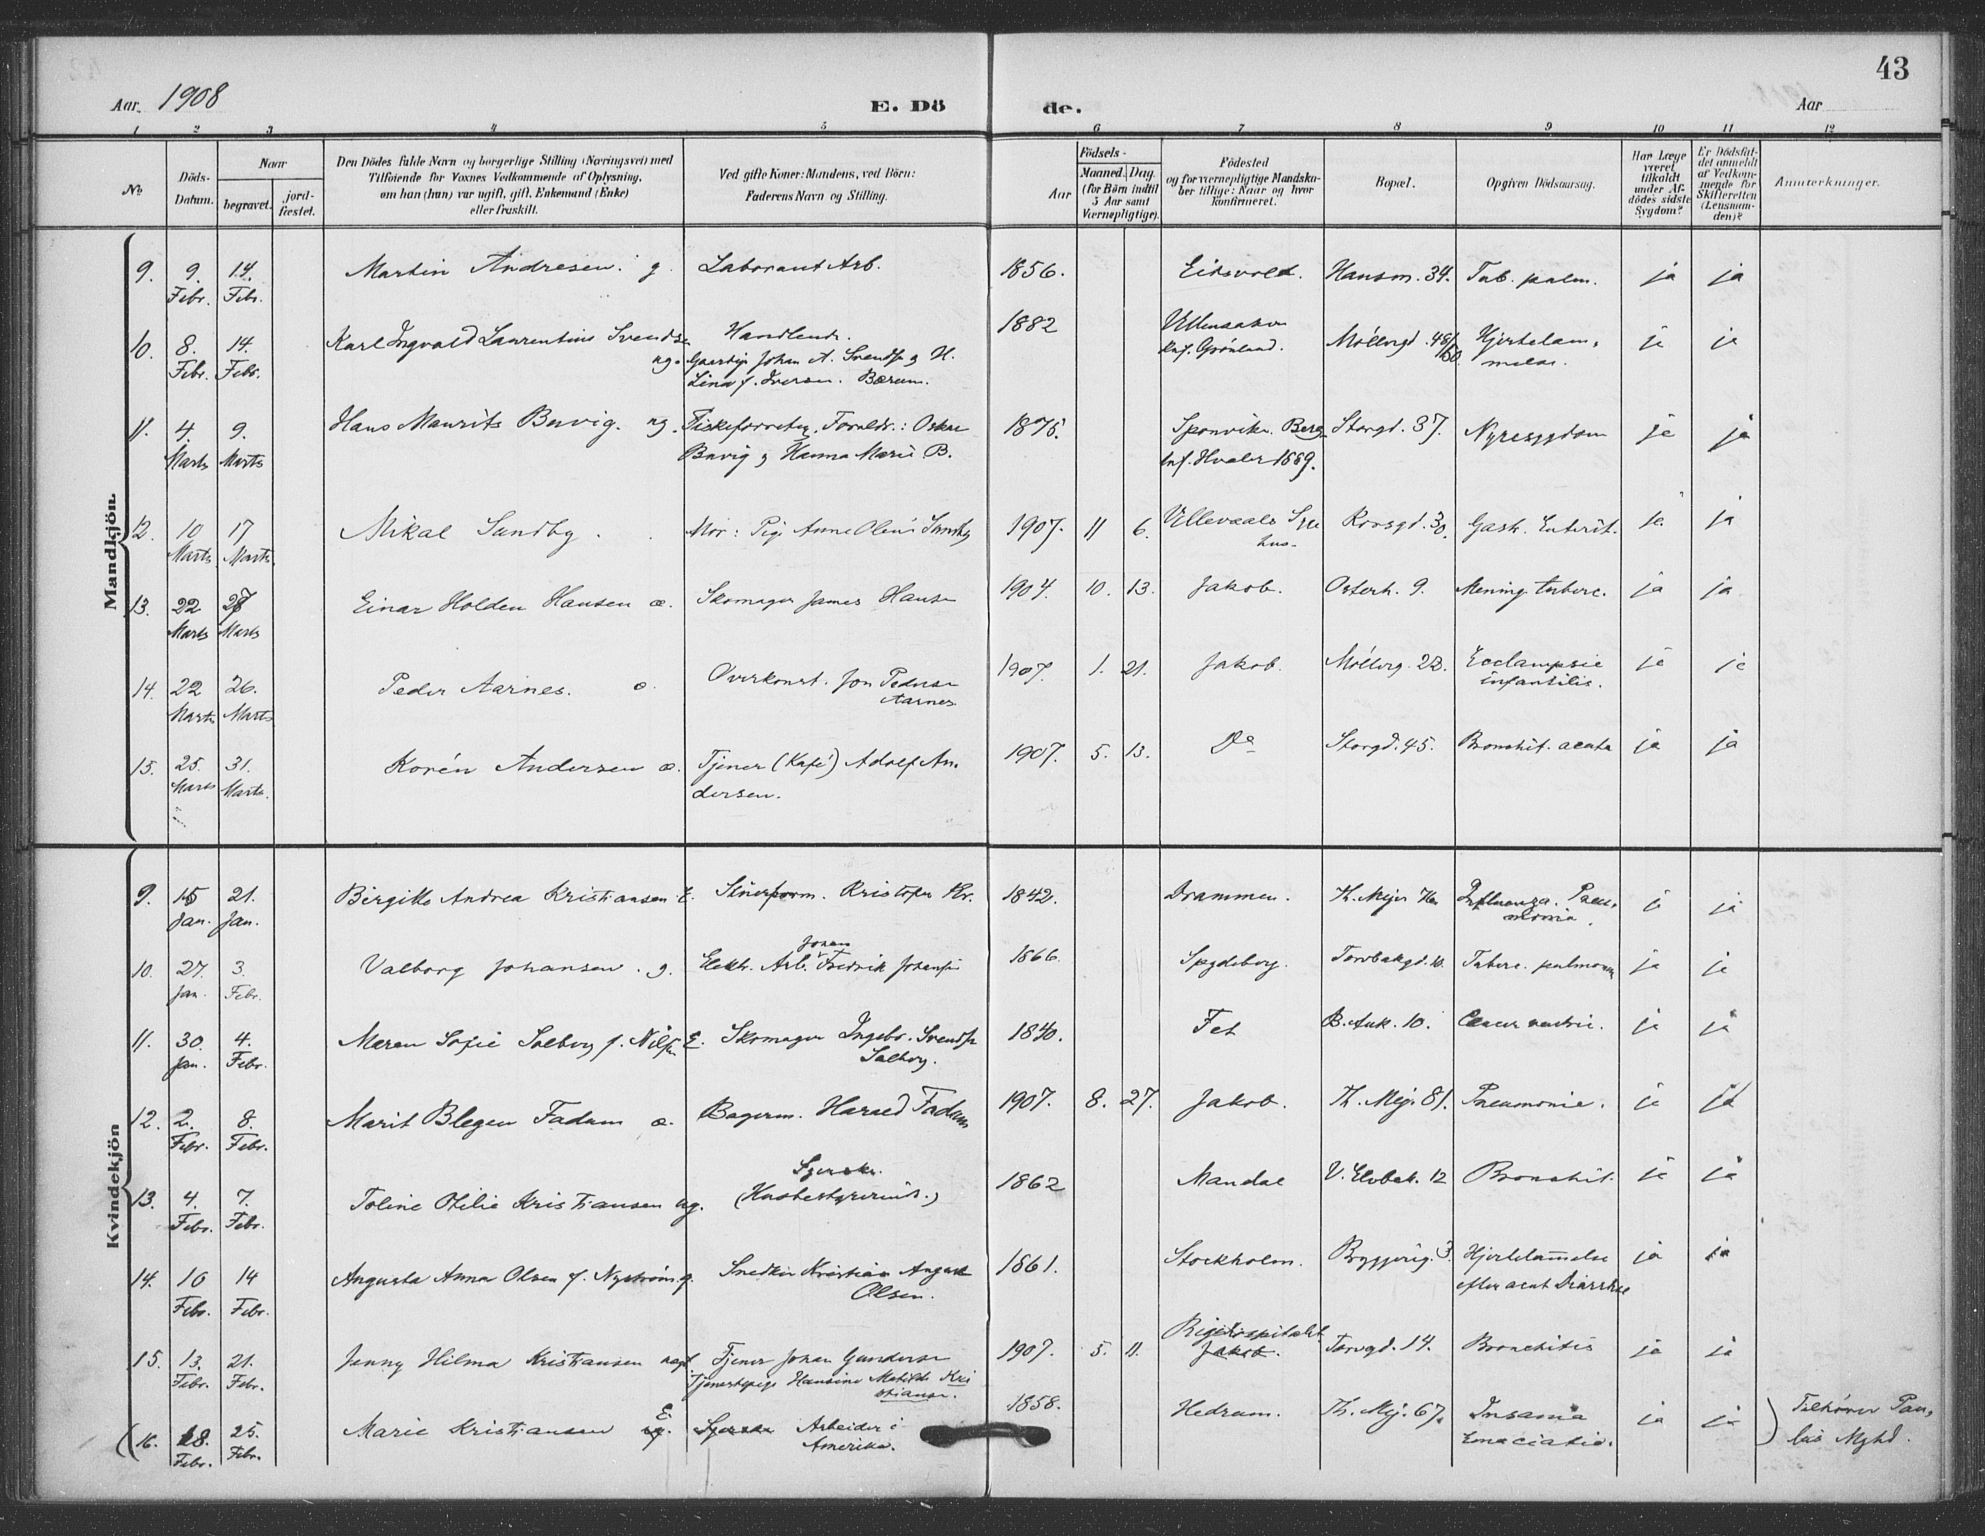 43
Aar 1908
E. Dö
de.
Aar
1 2 3 4 5 6 7 8 9 10 11 12
No
Döds-
Datum.
Naar
begravet.
jord-
fæstet.
Den Dödes fulde Navn og borgerlige Stilling (Næringsvei) med
Tilföiende for Voxnes Vedkommende af Oplysning,
om han (hun) var ugift, gift, Enkemand (Enke)
eller fraskilt.
Ved gifte Koner: Mandens, ved Börn:
Faderens Navn og Stilling.
Födsels-
Aar
Maaned. Dag.
(for Börn indtil
5 Aar samt
Værnepligtige).
Födested
og for værnepligtige Mandska-
ber tillige: Naar og hvor
konfirmeret.
Bopæl.
Opgiven Dödsaarsag.
Har Læge
været
tilkaldt
under Af-
dödes sidste
Sygdom?
Er Dödsfal-
det anmeldt
af Vedkom-
mende for
Skifteretten
(Lensman-
den)?
Anmærkninger.
Mandkjön.
9. 9. 14. Martin Andresen. g. Laborant Arb. 1856. Eidsvold. Hausm. 34. Tub. pulm. ja ja
Febr. Febr.
10. 8. 14. Karl Ingvald Laurentius Svendsen Handlende. 1882 Ullensaker Möllergd. 48/50. Hjertelam- ja ja
Febr. Febr. ug. Gaardbr. Johan A. Svends. g H. Knf. Grönland. melse.
Lina f. Iversen. Bærum.
11. 4. 9. Hans Maurits Buvig. ug. Fiskeforretn. Foreldr.: Oskar 1875. Sponvika. Berg Storgd. 37. Nyresygdom ja ja
Marts Marts Buvig g Hanna Marie B. knf. Hvaler 1889.
12. 10 17 Mikal Sundby Mor: Pige Anne Oleus Sundby 1907. 11 6. Ullevaals Syge Korsgd. 30. Gastr. Enterit. ja ja
Marts Marts hus.
13. 22 27 Einar Holden Hansen æ. Skomager James Hansen 1904. 10. 13. Jakob. Osterh. 9. Mening. tuberc. ja ja
Marts Marts
14. 22 26. Peder Aarnes. Overkonst. Jon Pedersen 1907. 1. 21. Jakob. Möllerg. 22. Ecclampsie ja ja
Marts Marts Aarnes infantilis.
15. 25. 31. Korén Andersen æ. Tjener (Kafé) Adolf An- 1907. 5. 13. Do Storgd. 45. Bronchit. acuta ja ja
Marts Marts. dersen.
Kvindekjön
9. 15 21. Birgitte Andrea Kristiansen E. Stuerform. Kristofer Kr. 1842. Drammen. Th. Meyer Influenza. Pneu- ja ja
Jan. Jan. monia.
10. 27. 3. Valborg Johansen. g. Elektr. Arb. Johan Fredrik Johansen 1866. Spydeberg. Torvbakgd. 10. Tuberc. pulmonum ja ja
Jan. Febr.
11. 30. 4. Maren Sofie Solberg f. Nilsen E. Skomager Ingebr. Svends. 1840. Fet B. Ank. 10. Cancer ventric. ja ja
Jan. Febr. Solberg.
12. 2. 8. Marit Blegen Fadum æ. Bagerm. Harald Fadum 1907. 8. 27. Jakob. Th. Mey. 81. Pneumonie. ja ja
Febr. Febr.
13. 4. 7. Toline Otilie Kristiansen ug. Syerske. 1862 Mandal V. Elvbak. 12 Bronchit. ja ja
Febr. Febr.
14. 10 14 Augusta Anna Olsen f. Nyström g. Snedker Kristian August 1861. Stockholm. Bryggerig. 3. Hjertelammelse ja ja
Febr. Febr. Olsen. efter acut Diarrhoe
15. 13. 21. Jenny Hilma Kristiansen uægt Tjener Johan Gundersen 1907. 5. 11. Rigshospitalet Jakob. Torvgd. 14. Bronchitis ja ja
Febr. Febr. Tjenestepige Hansine Matilde Kri
stiansen.
16. 18. 25. Marie Kristiansen E. ug. Syerske Arbeider i 1858. Hedrum. Th. Mey. 67. Insania ja ja Tilhörer Pau-
Febr. Febr. Amerika. Emaciatio. lus Mghd.